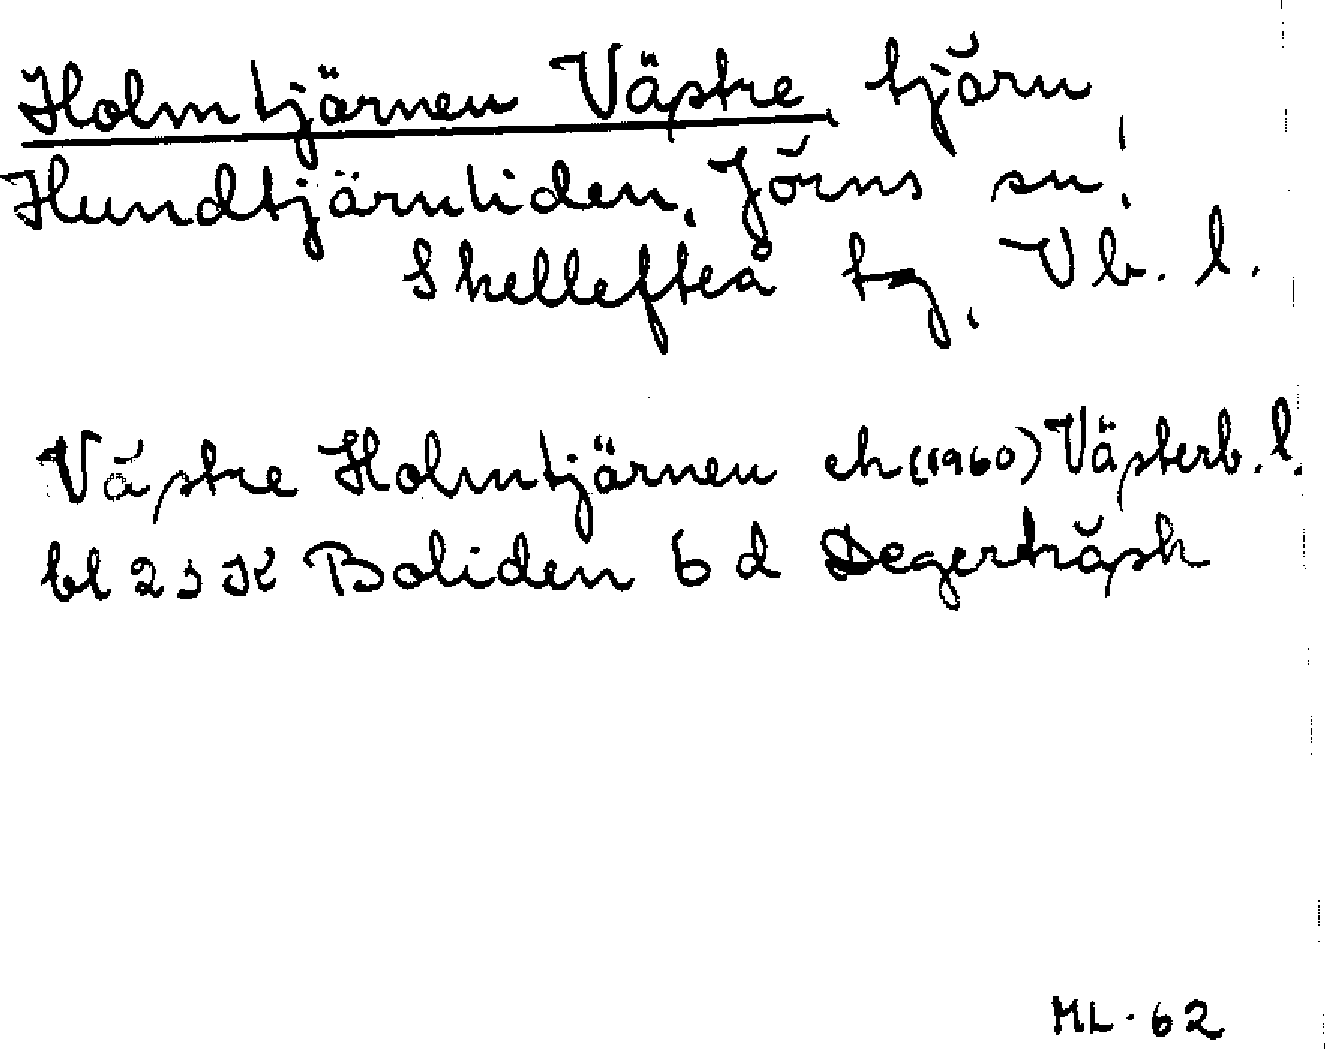 Holmtjärnen Västre, tjärn,
Hundtjärnliden, Jörns sn,
Skellefteå tg, Vb. l.
Västre Holmtjärnen ek (1960) Västerb. l.
bl 23 K Boliden 6 d Degerträsk
ML - 62